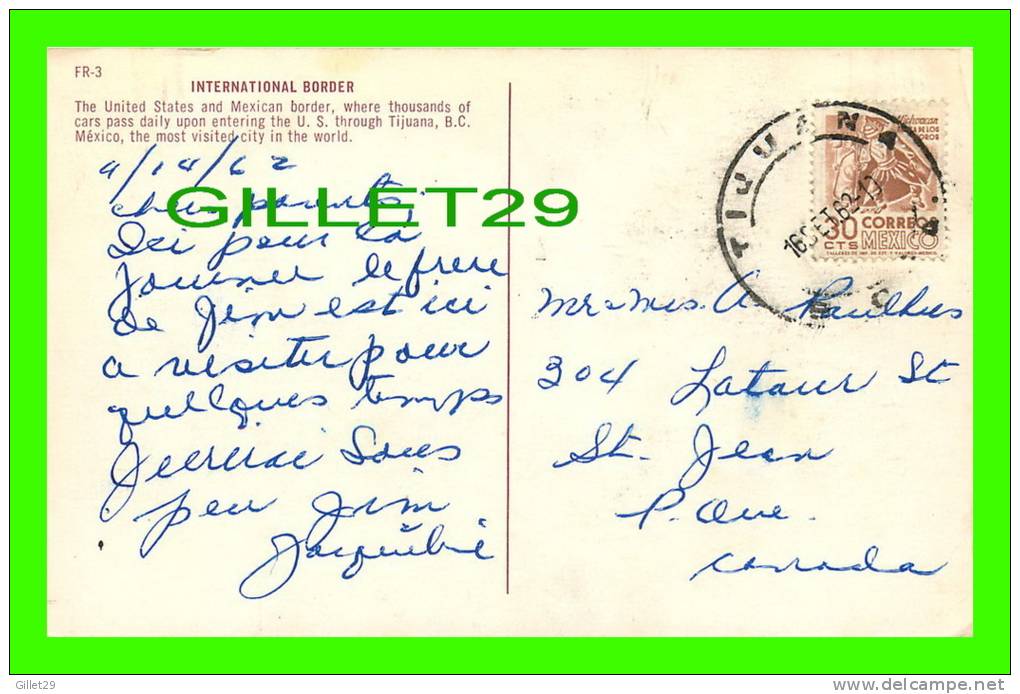 FR-3
INTERNATIONAL BORDER
The United States and Mexican border, where thousands of
cars pass daily upon entering the U. S. through Tijuana, B.C.
México, the most visited city in the world.
9/14/62
GILLET29
cher parents,
Ici pour la
journee le frere
de Jim est ici
a visiter pour
quelques temps
Jecrirai sous
peu Jim
Jacqueline
TIJUANA
16 SET. 62
Michoacan
DE LOS
30 CORREOS
CTS MEXICO
Mr & Mrs. A
304 Latour St
St. Jean
P. Que.
Canada
Gillet29
www.delcampe.net